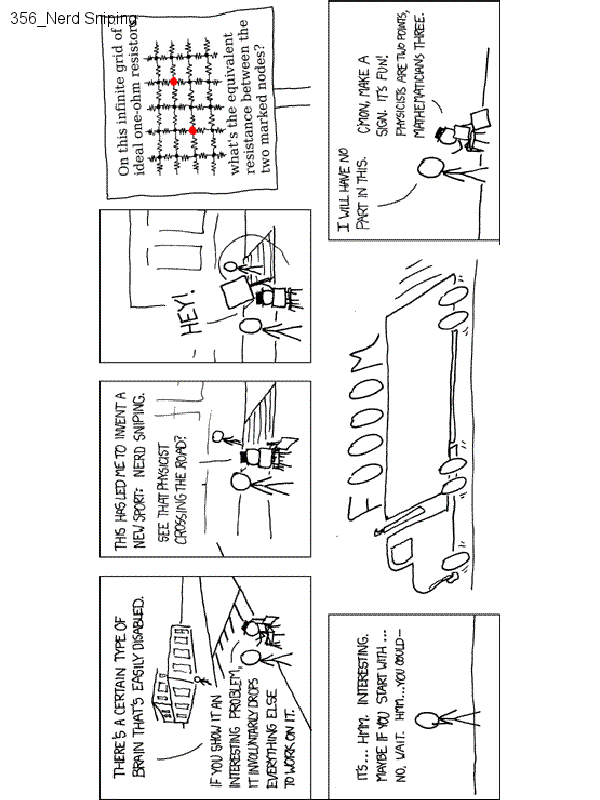 356_Nerd Sniping
THERE'S A CERTAIN TYPE OF
BRAIN THAT'S EASILY DISABLED.
IF YOU SHOW IT AN
INTERESTING PROBLEM,
IT INVOLUNTARILY DROPS
EVERYTHING ELSE
TO WORK ON IT.
THIS HAS LED ME TO INVENT A
NEW SPORT: NERD SNIPING.
SEE THAT PHYSICIST
CROSSING THE ROAD?
HEY!
On this infinite grid of
ideal one-ohm resistors,
what's the equivalent
resistance between the
two marked nodes?
IT'S... HMM. INTERESTING.
MAYBE IF YOU START WITH ...
NO, WAIT. HMM...YOU COULD—
FOOOOM
I WILL HAVE NO
PART IN THIS.
CMON, MAKE A
SIGN. IT'S FUN!
PHYSICISTS ARE TWO POINTS,
MATHEMATICIANS THREE.